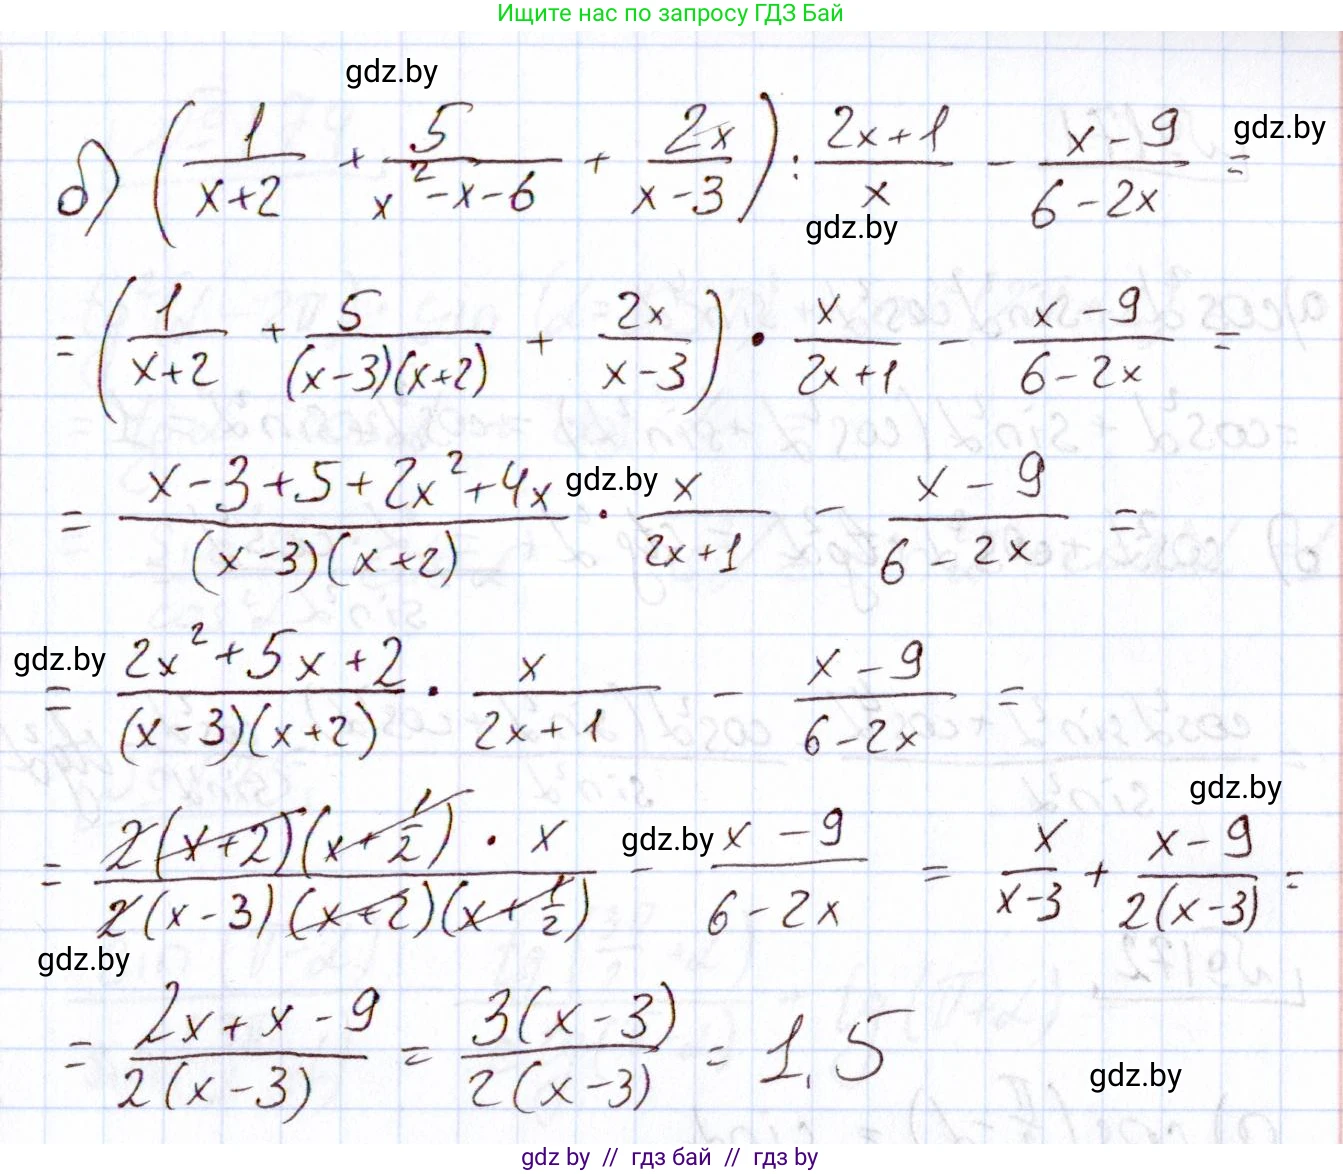 Ищите нас по запросу ГДЗ Бай
gdz.by
б) (1/(x+2) + 5/(x²-x-6) + 2x/(x-3)) : (2x+1)/x - (x-9)/(6-2x) =
gdz.by
gdz.by
= (1/(x+2) + 5/((x-3)(x+2)) + 2x/(x-3)) · x/(2x+1) - (x-9)/(6-2x) =
= (x-3+5+2x²+4x)/((x-3)(x+2)) · x/(2x+1) - (x-9)/(6-2x) =
gdz.by
gdz.by
= (2x²+5x+2)/((x-3)(x+2)) · x/(2x+1) - (x-9)/(6-2x) =
gdz.by
= (2(x+2)(x+1/2) · x)/(2(x-3)(x+2)(x+1/2)) - (x-9)/(6-2x) = x/(x-3) + (x-9)/(2(x-3)) =
gdz.by
gdz.by
= (2x+x-9)/(2(x-3)) = (3(x-3))/(2(x-3)) = 1,5
gdz.by
gdz by // гдз бай // гдз by